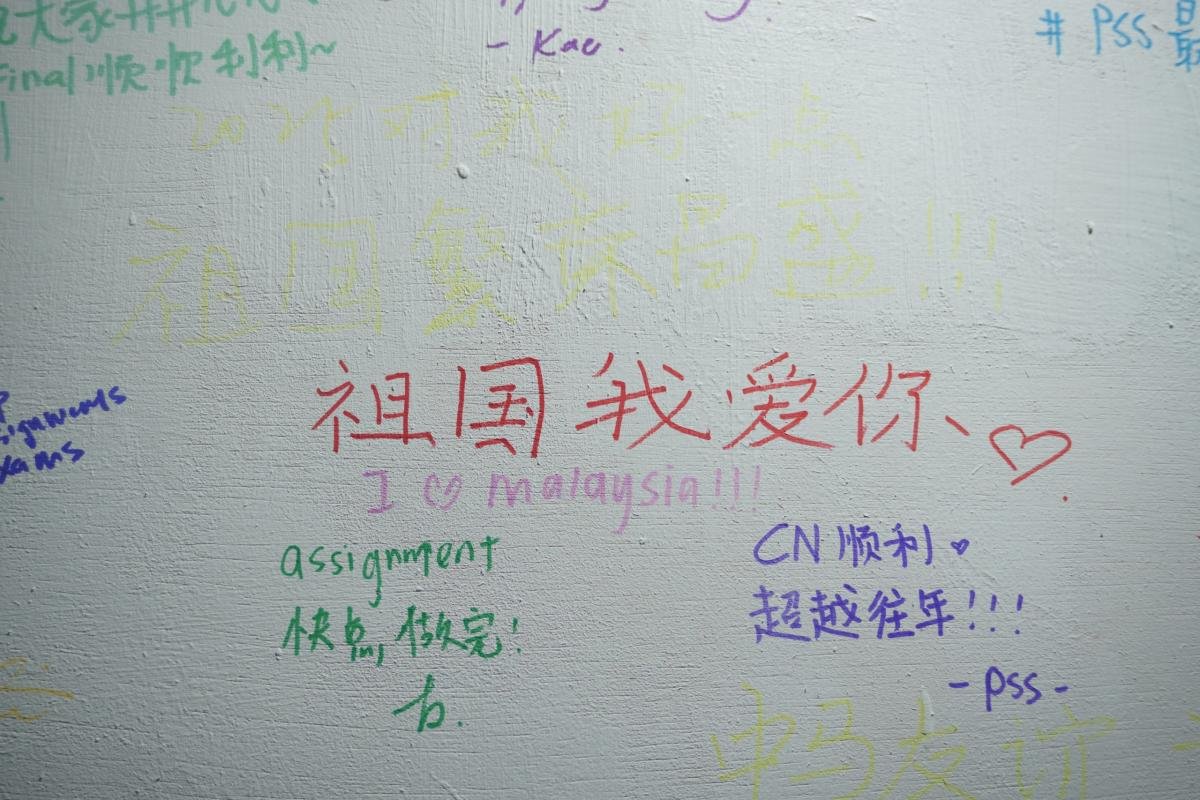 大家
Final顺顺利利~
- Kae.
# PSS 最
2025对我好一点
祖国繁荣昌盛!!!
祖国我爱你、♡.
I ♡ malaysia!!!
assignment
快点,做完!
CN顺利♥
超越往年!!!
- PSS -
中马友谊